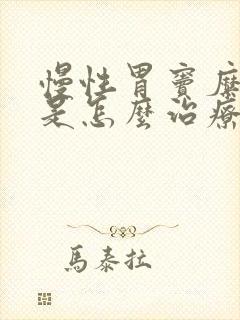 慢性胃竇糜
是怎麼治療
馬泰拉